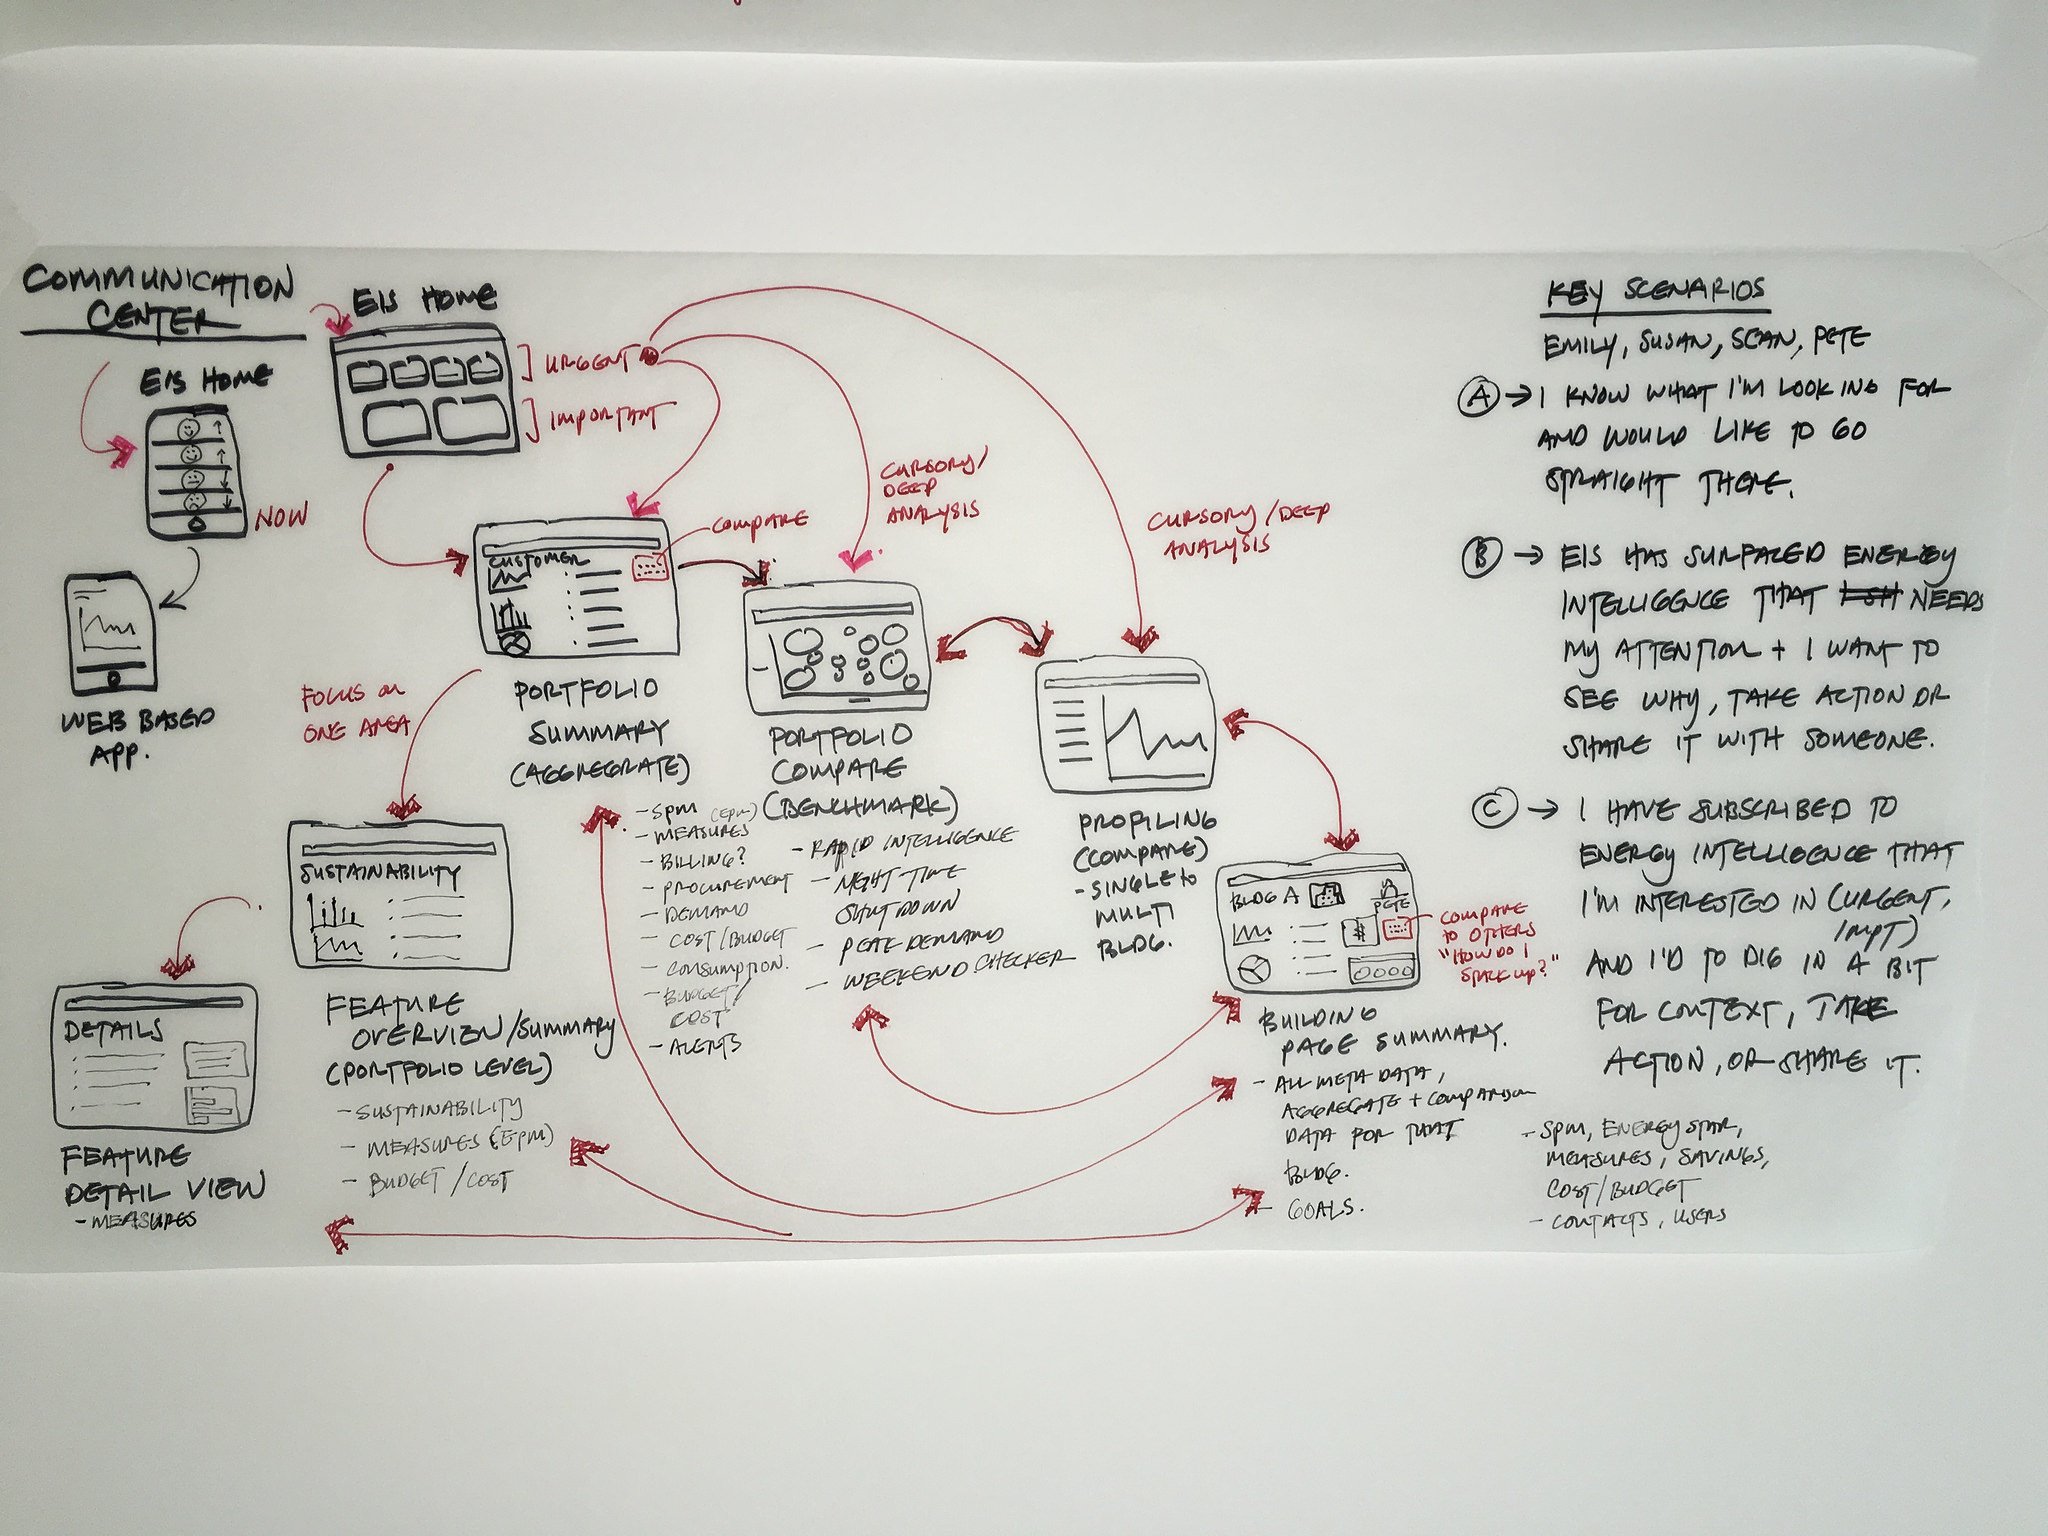 COMMUNICATION
CENTER
EIS HOME
NOW
WEB BASED
APP.
EIS HOME
URGENT
IMPORTANT
CURSORY/
DEEP
ANALYSIS
CURSORY/DEEP
ANALYSIS
COMPARE
CUSTOMER
PORTFOLIO
SUMMARY
(AGGREGRATE)
- SPM (EPM)
- MEASURES
- BILLING?
- PROCUREMENT
- DEMAND
- COST/BUDGET
- CONSUMPTION.
- BUDGET/
COST
- ALERTS
PORTFOLIO
COMPARE
(BENCHMARK)
- RAPID INTELLIGENCE
- NIGHT TIME
SHUT DOWN
- PEAK DEMAND
- WEEKEND CHECKER
PROFILING
(COMPARE)
- SINGLE to
MULTI
BLDG.
FOCUS on
ONE AREA
SUSTAINABILITY
FEATURE
OVERVIEW/SUMMARY
(PORTFOLIO LEVEL)
- SUSTAINABILITY
- MEASURES (EPM)
- BUDGET/COST
DETAILS
FEATURE
DETAIL VIEW
- MEASURES
BLDG A
PETE
$
COMPARE
to OTHERS
"HOW DO I
STACK UP?"
BUILDING
PAGE SUMMARY.
- ALL META DATA,
AGGREGATE + COMPARISON
DATA FOR THAT
BLDG.
- GOALS.
KEY SCENARIOS
EMILY, SUSAN, SEAN, PETE
A → I KNOW WHAT I'M LOOKING FOR
AND WOULD LIKE TO GO
STRAIGHT THERE.
B → EIS HAS SURFACED ENERGY
INTELLIGENCE THAT NEEDS
MY ATTENTION + I WANT TO
SEE WHY, TAKE ACTION OR
SHARE IT WITH SOMEONE.
C → I HAVE SUBSCRIBED TO
ENERGY INTELLIGENCE THAT
I'M INTERESTED IN (URGENT,
IMPT)
AND I'D TO DIG IN A BIT
FOR CONTEXT, TAKE
ACTION, OR SHARE IT.
- SPM, ENERGY STAR,
MEASURES, SAVINGS,
COST/BUDGET
- CONTACTS, USERS